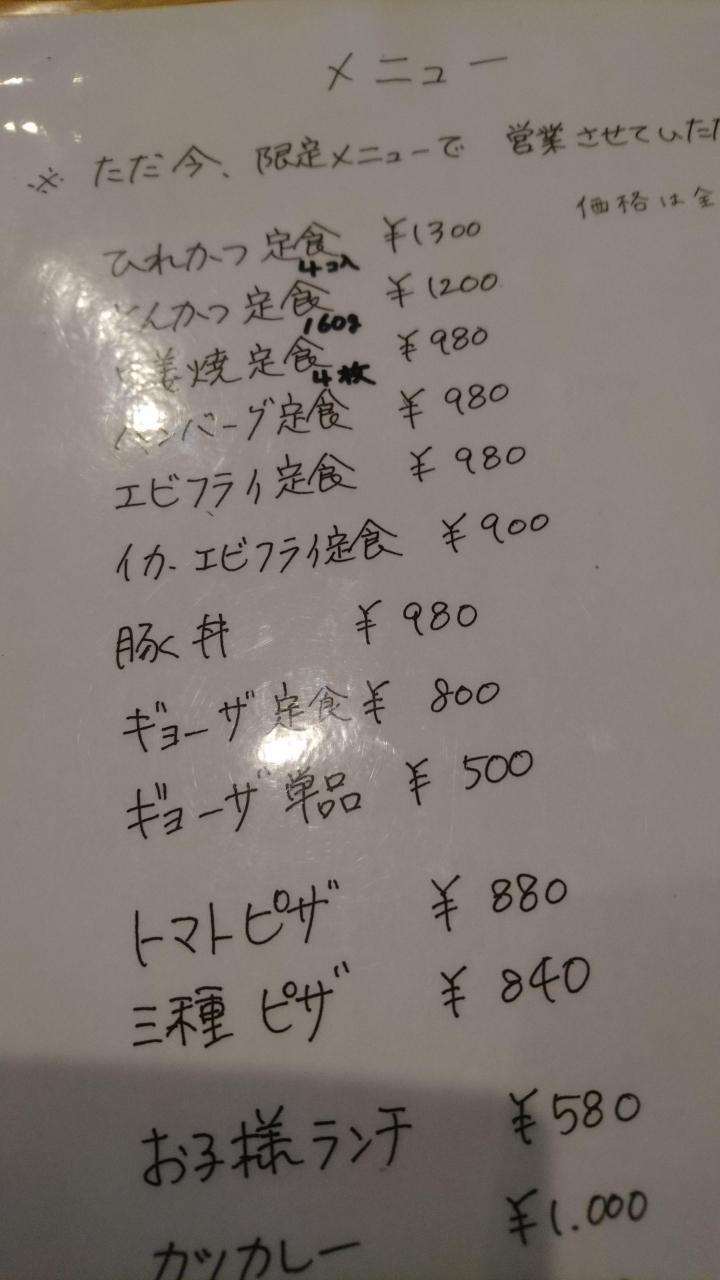 メニュー
※ ただ今、限定メニューで 営業させていただ
価格は全
ひれかつ定食 ¥1300
4コ入
とんかつ定食 ¥1200
160g
生姜焼定食 ¥980
4枚
ハンバーグ定食 ¥980
エビフライ定食 ¥980
イカ・エビフライ定食 ¥900
豚く丼 ¥980
ギョーザ定食 ¥800
ギョーザ単品 ¥500
トマトピザ ¥880
三種ピザ ¥840
お子様ランチ ¥580
カツカレー ¥1.000